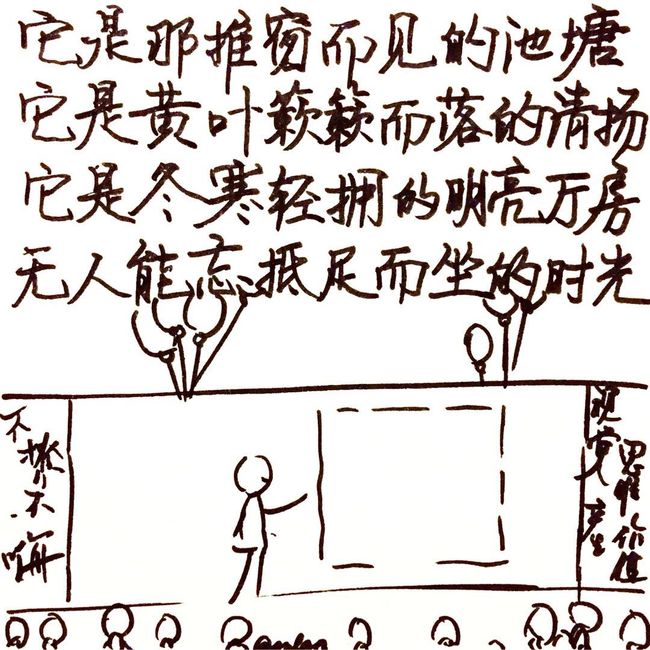 它是那推窗而见的池塘
它是黄叶簌簌而落的清扬
它是冬寒轻拥的明亮万房
无人能忘抵足而坐的时光
视觉产生
思维价值